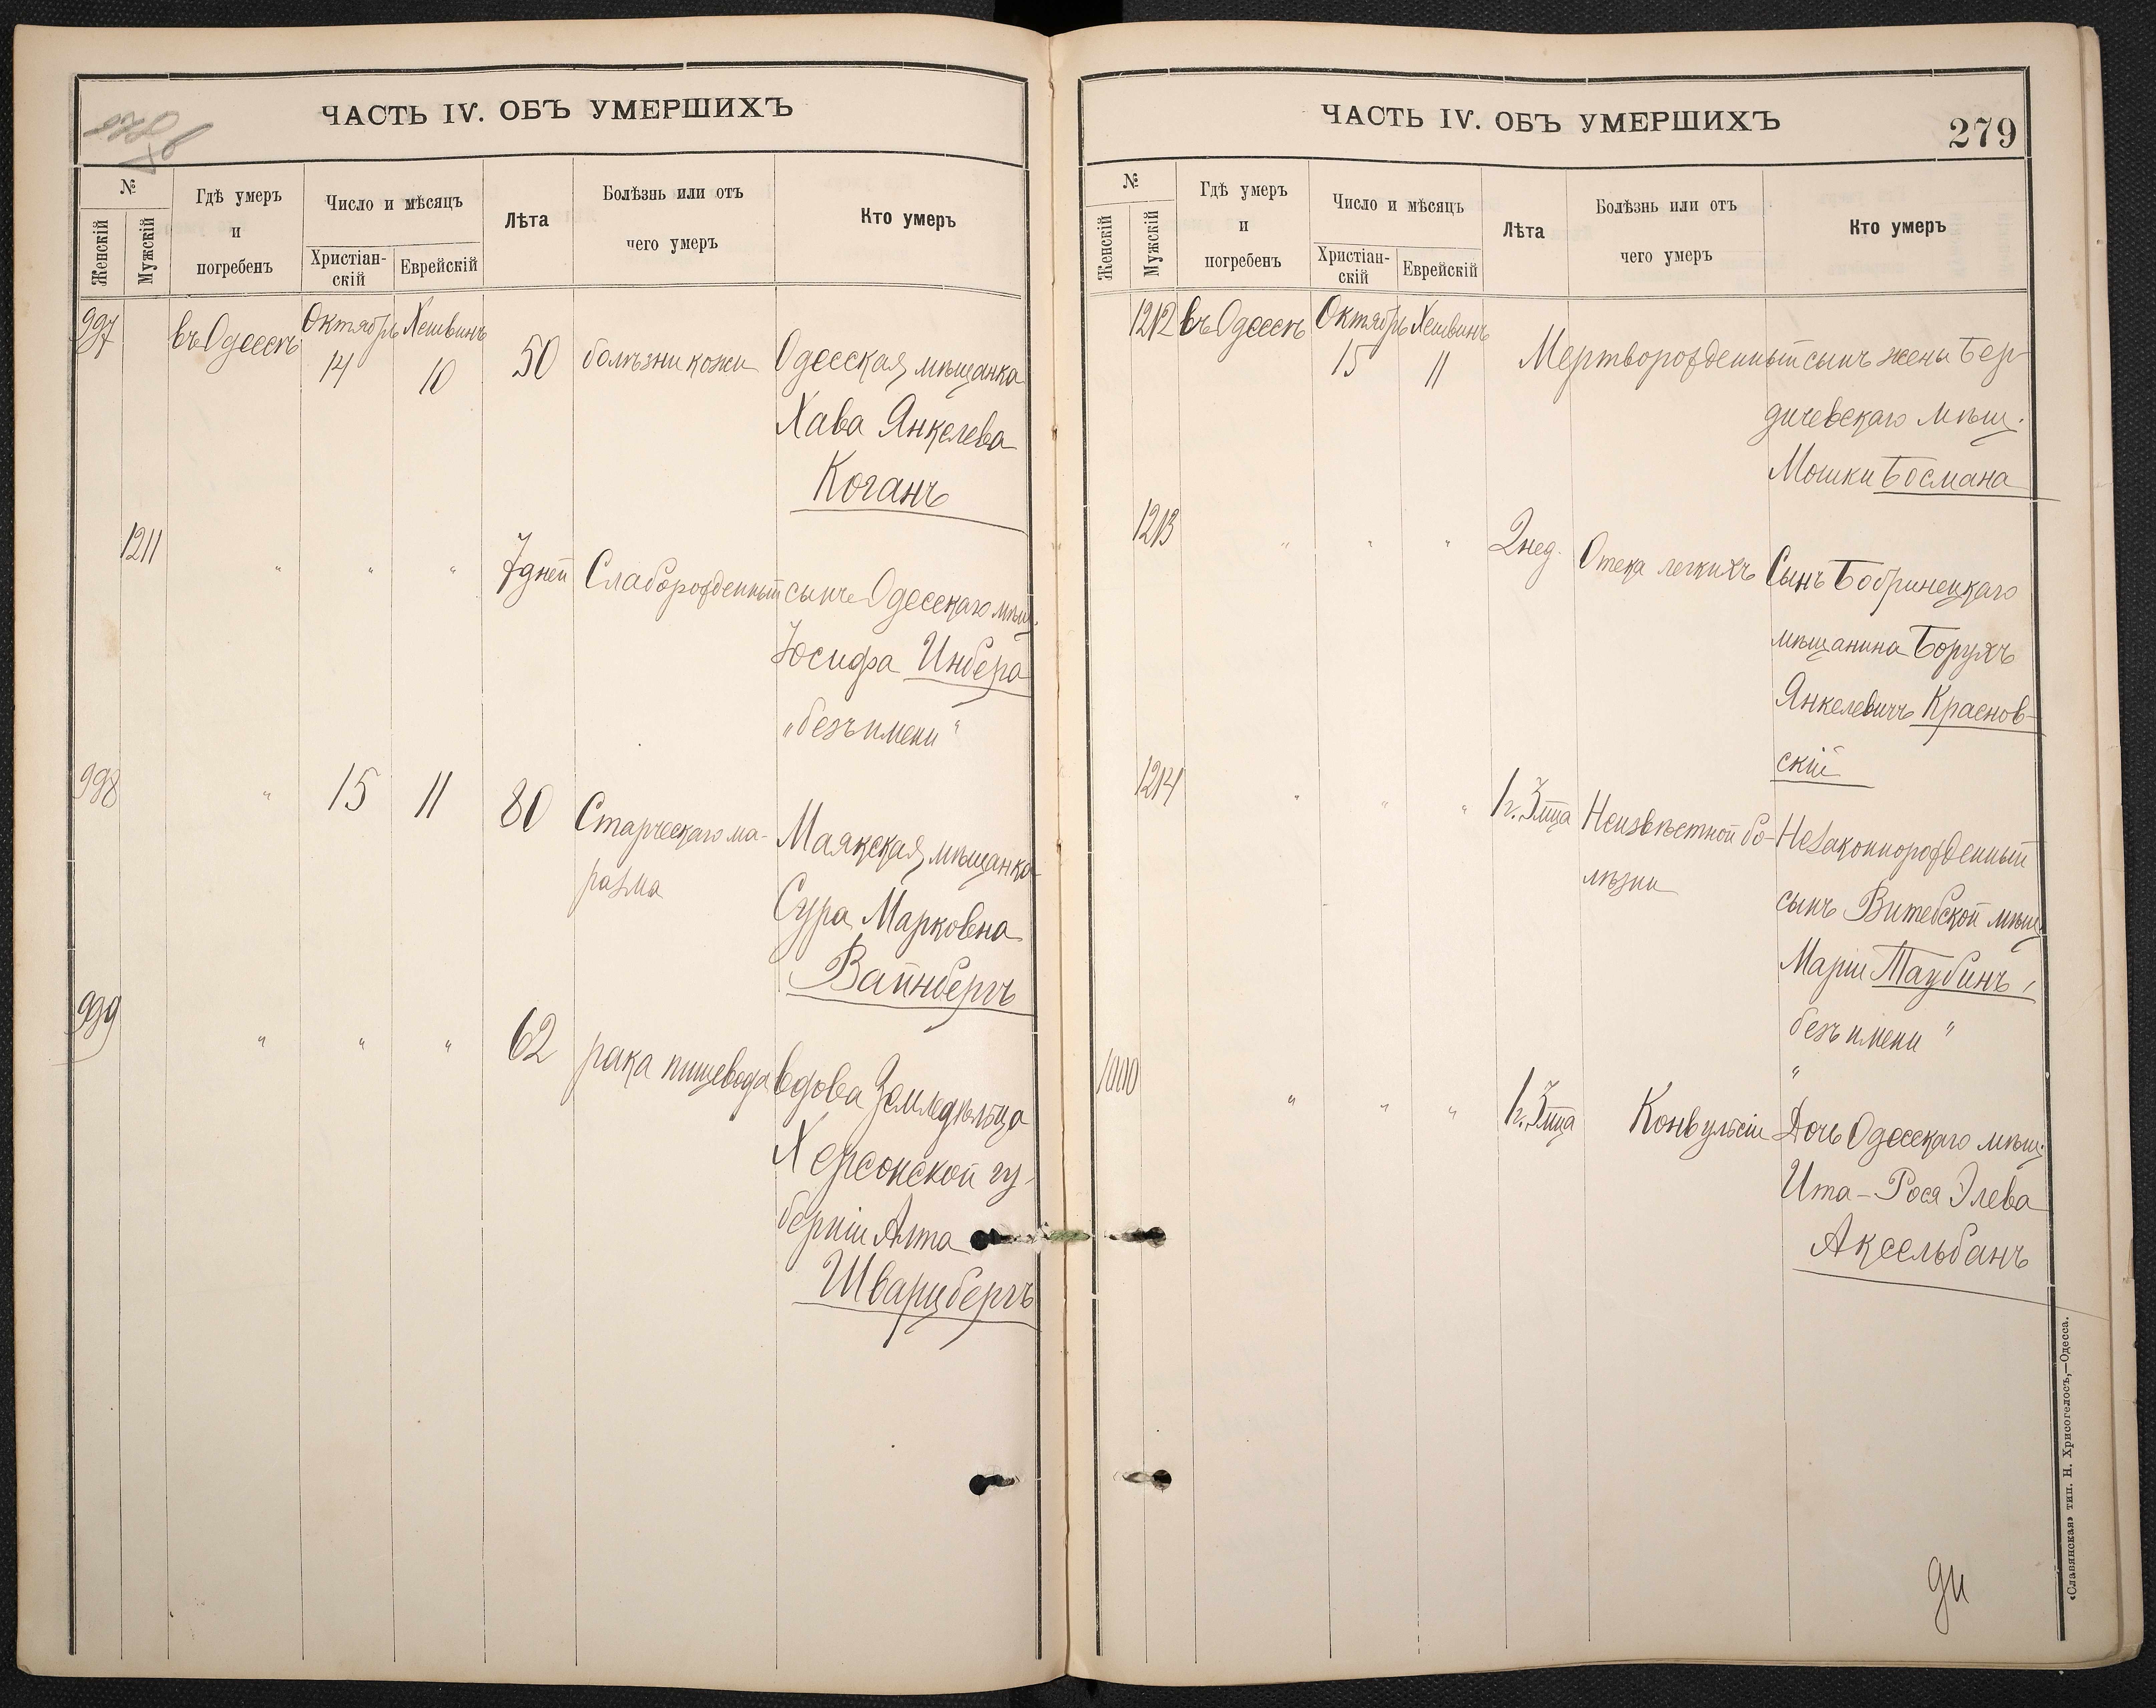 ЧАСТЬ IV. ОБЪ УМЕРШИХЪ
№
Женскій
Мужскій
Гдѣ умеръ
и
погребенъ
Число и мѣсяцъ
Христіан-
скій
Еврейскій
Лѣта
Болѣзнь или отъ
чего умеръ
Кто умеръ
997 въ Одессѣ Октябрь Хешвинъ
14 10 50 болѣзни кожи Одесская мѣщанка
Хава Янкелева
Коганъ
1211 " " " 7 дней Слаборожденный сынъ Одесскаго мѣщ.
Юсифа Инбера
„безъ имени"
998 " 15 11 80 Старческаго ма- Маякская мѣщанка
разма
Сура Марковна
Вайнбергъ
999 " " " 62 рака пищевода вдова Земледѣльца
Херсонской гу-
берніи Алта
Шварцбергъ
ЧАСТЬ IV. ОБЪ УМЕРШИХЪ
279
№
Женскій
Мужскій
Гдѣ умеръ
и
погребенъ
Число и мѣсяцъ
Христіан-
скій
Еврейскій
Лѣта
Болѣзнь или отъ
чего умеръ
Кто умеръ
1212 въ Одессѣ Октябрь Хешвинъ
15 11 Мертворожденный сынъ жены Бер-
дичевскаго мѣщ.
Мошки Босмана
1213 " " " 2 нед. Отека легкихъ Сынъ Бобринецкаго
мѣщанина Борухъ
Янкелевичъ Краснов-
скій
1214 " " " 1 г. 3 м-ца Неизвѣстной бо- Незаконнорожденный
лѣзни
сынъ Витебской мѣщ.
Маріи Таубинъ,
безъ имени "
"
1000 " " " 1 г. 3 м-ца Конвульсіи Дочь Одесскаго мѣщ.
Ита-Рося Элева
Аксельбанъ
«Славянская» тип. Н. Хрисогелосъ,—Одесса.